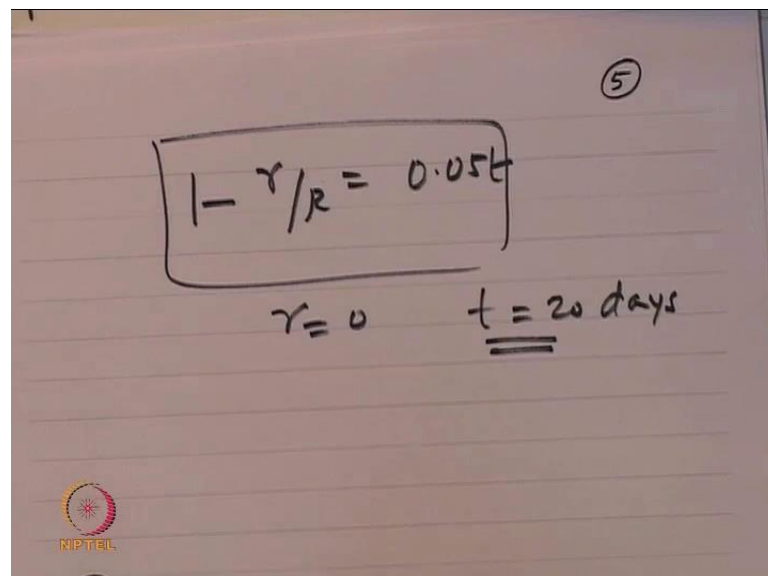 5
1 - r/R = 0.05t
r = 0 t = 20 days
NPTEL